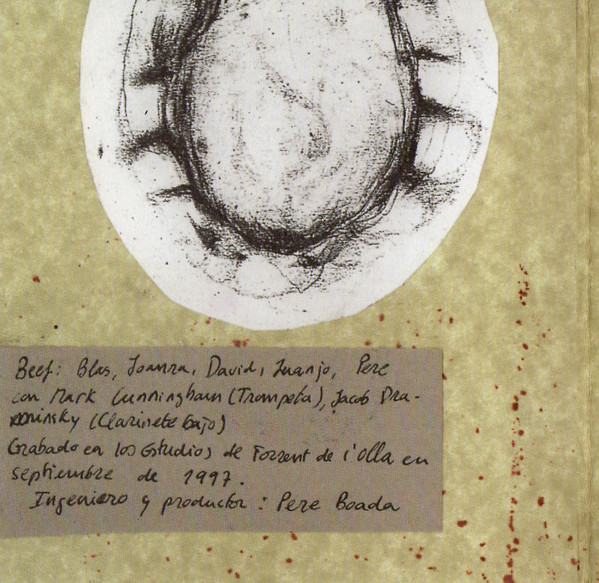 Beef: Blas, Joanra, David, Juanjo, Pere
con Mark Cunningham (Trompeta), Jacob Dra-
minsky (Clarinete bajo)
Grabado en los Estudios de Torrent de l'olla en
septiembre de 1997.
Ingeniero y productor: Pere Boada